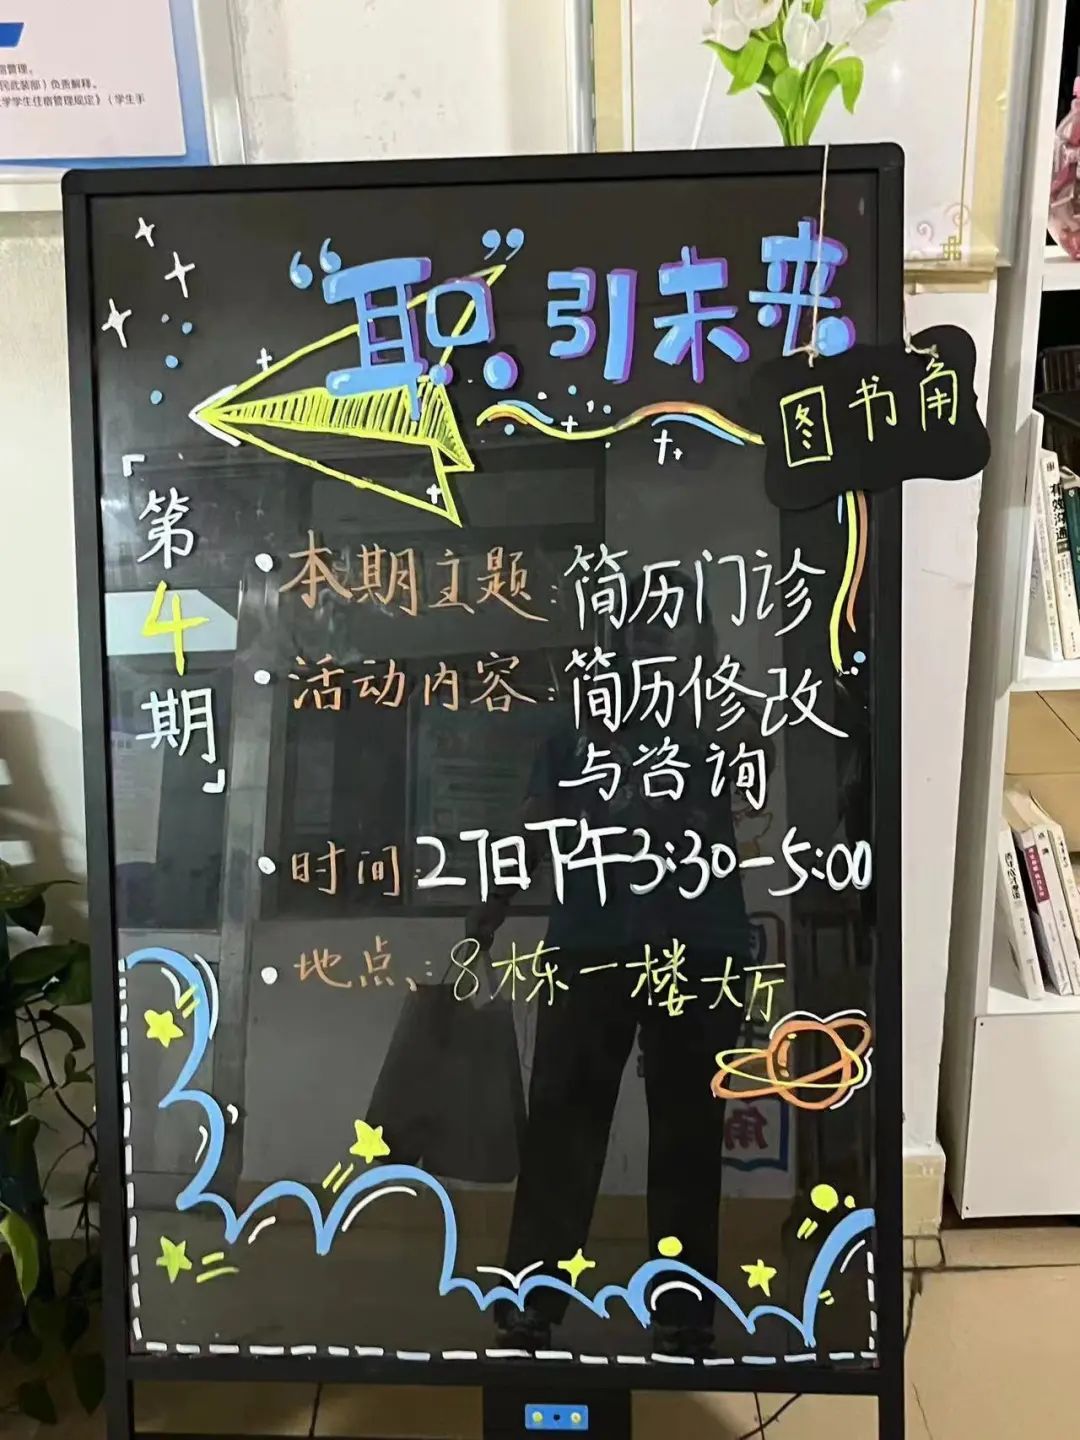 宿管理。
民武装部）负责解释。
大学学生住宿管理规定》（学生手
“职”引未来
图书角
「第4期」
• 本期主题：简历门诊
• 活动内容：简历修改
与咨询
• 时间：27日下午3:30-5:00
• 地点：8栋一楼大厅
有效沟通
角